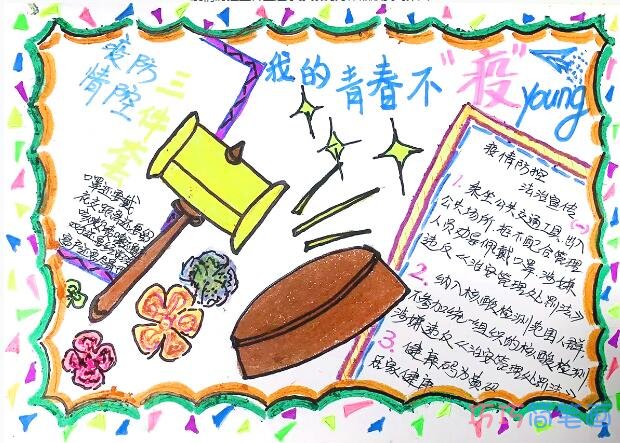 我的青春不“疫”young
疫情防控
三件套
口罩还要戴
疫情防控
法治宣传
(一)
1. 乘坐公共交通工具、出入
公共场所,拒不配合管理
人员劝导佩戴口罩,涉嫌
违反《治安管理处罚法》
2. 纳入核酸检测范围人群,
不参加统一组织的核酸检测,
涉嫌违反《治安管理处罚法》
3. 健康码为黄码
居家健康
简笔画